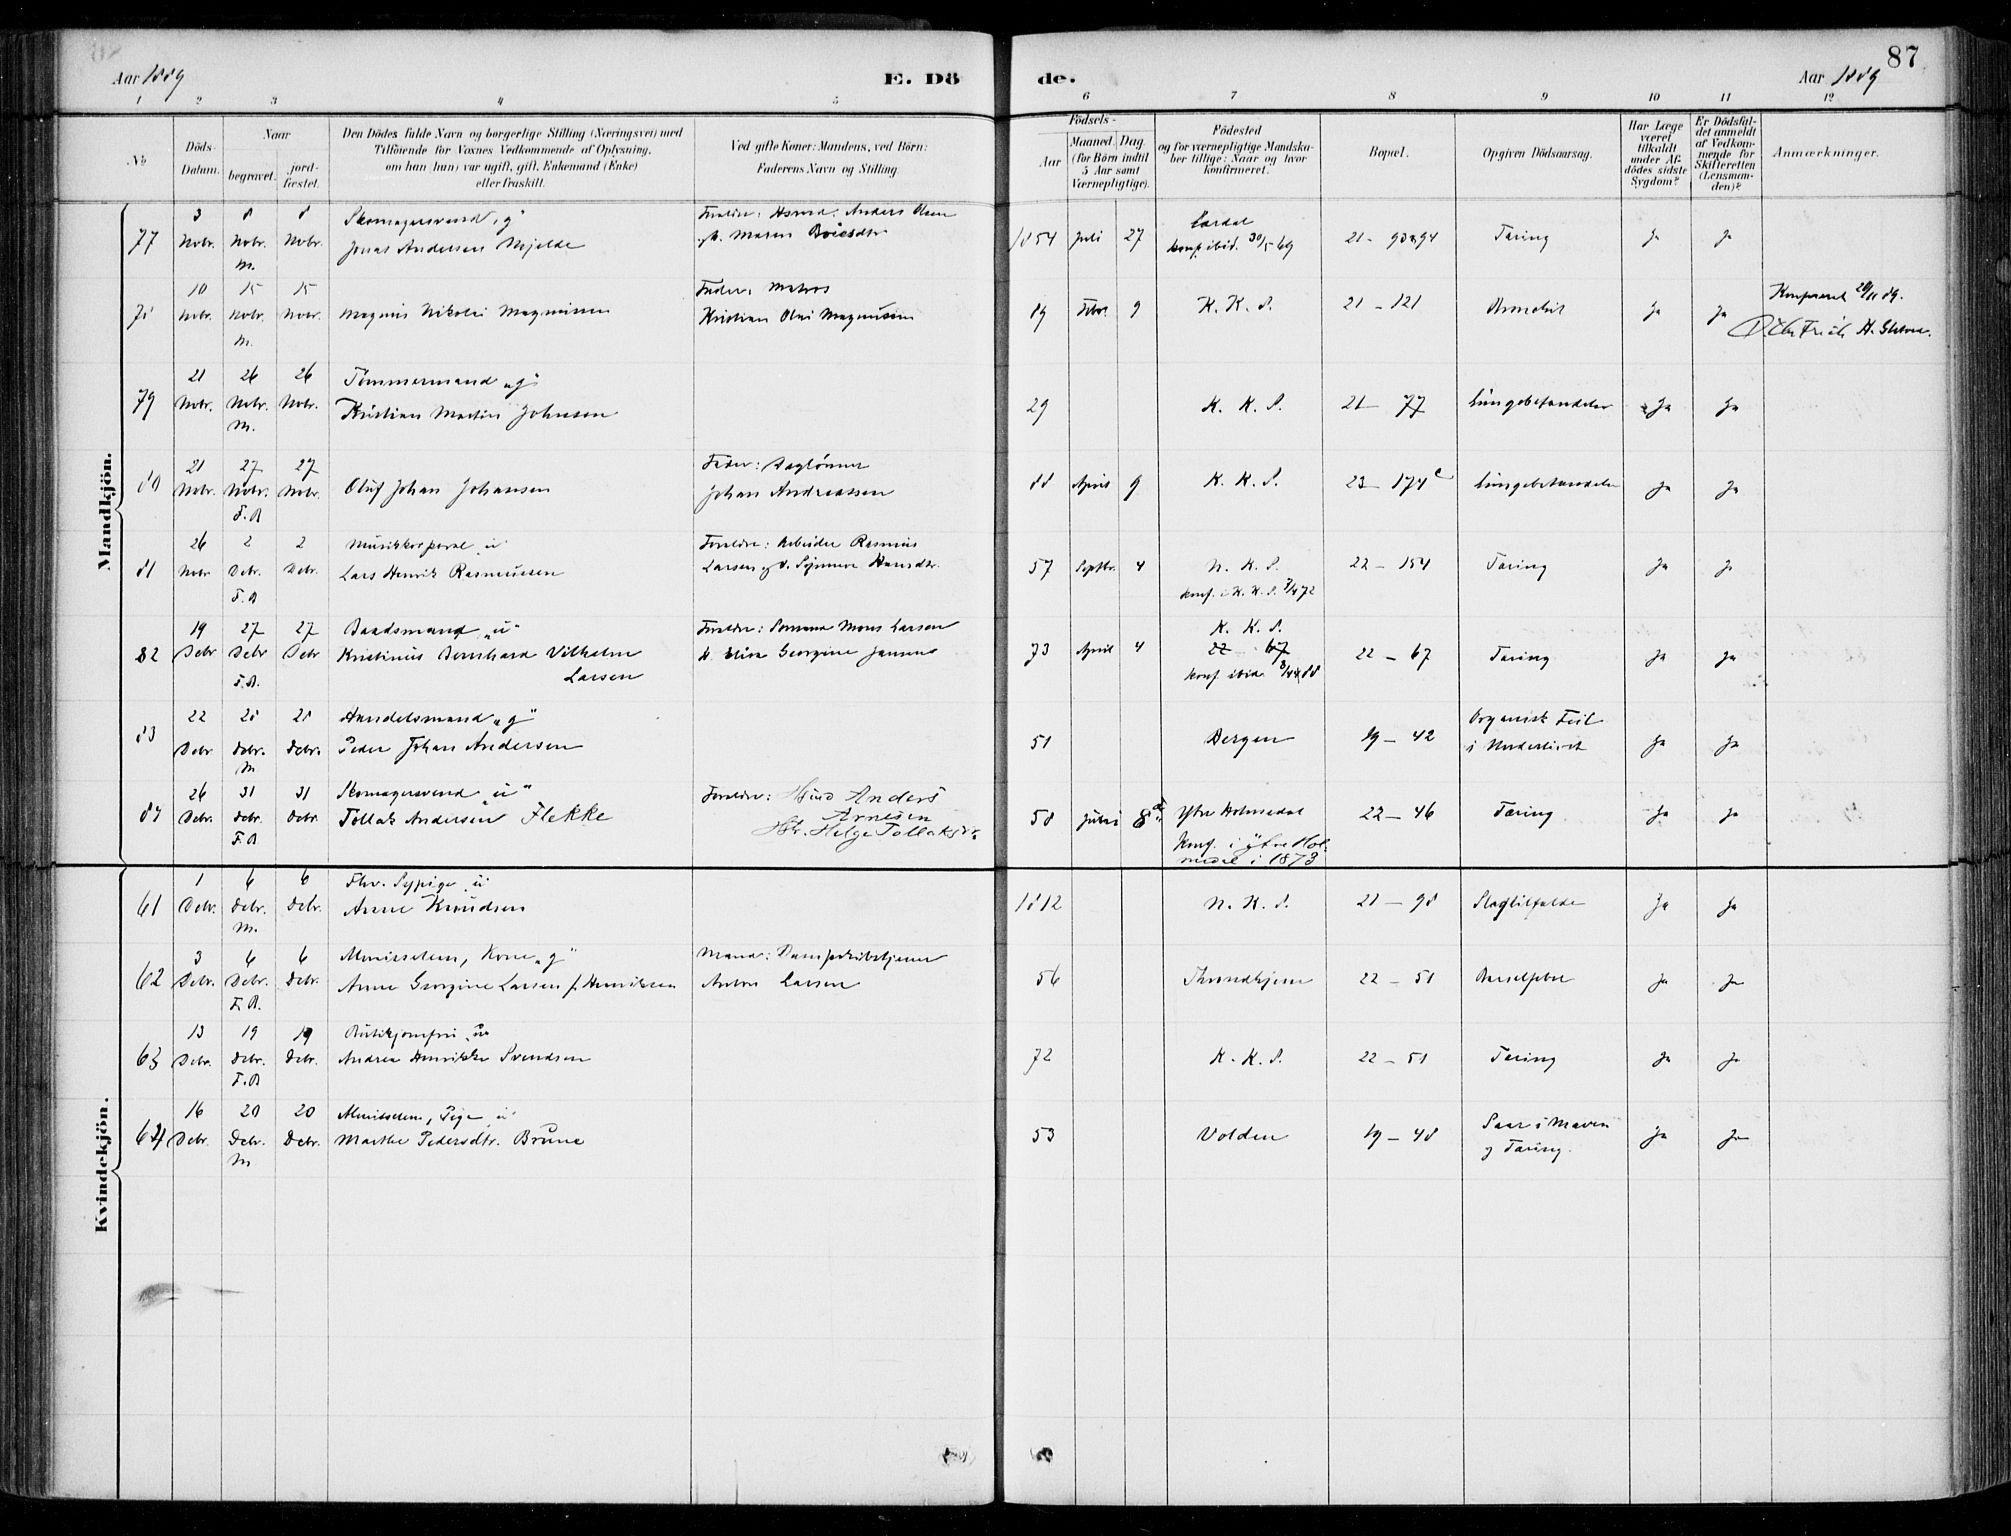 87
Aar 1889
E. Dö
de.
Aar 1889
1 2 3 4 5 6 7 8 9 10 11 12
No
Döds-Datum.
Naar
begravet.
jord-fæstet.
Den Dödes fulde Navn og borgerlige Stilling (Næringsvei) med
Tilföiende for Voxnes Vedkommende af Oplysning,
om han (hun) var ugift, gift, Enkemand (Enke)
eller fraskilt.
Ved gifte Koner: Mandens, ved Börn:
Faderens Navn og Stilling
Födsels-
Aar
Maaned. Dag.
(for Börn indtil
5 Aar samt
Værnepligtige).
Födested
og for værnepligtige Mandska-
ber tillige: Naar og hvor
konfirmeret.
Bopæl.
Opgiven Dödsaarsag.
Har Læge
været
tilkaldt
under Af-
dödes sidste
Sygdom?
Er Dödsfal-
det anmeldt
af Vedkom-
mende for
Skifteretten
(Lensman-
den)?
Anmærkninger.
Mandkjön.
3 8 8 Skomagersvend "g" Forældre: Anders Olsen
77 Novbr. Novbr. Novbr. Jonas Andersen Mjelde Maren 1854 Juli 27 Lærdal 21 - 93&94 Tæring Ja Ja
M. konf. ibid. 30/5 69
10 15 15 Fader: Matros
78 Novbr. Novbr. Novbr. Magnus Nikolai Magnussen Kristian Olai Magnussen 89 Febr. 9 K. K. S. 21 - 121 Ja Ja
M.
21 26 26 Tömmermand "g"
79 Novbr. Novbr. Novbr. Kristian Martin Johnsen 29 K. K. S. 21 - 77 Lungebetændelse Ja Ja
M.
21 27 27 Fader: Daglönner
80 Novbr. Novbr. Novbr. Oluf Johan Johansen Johan Andreassen 88 April 9 K. K. S. 23 - 174c Lungebetændelse Ja Ja
F.B
26 2 2 Musikkorporal "u" Forældre: Arbeider Rasmus
81 Novbr. Debr. Debr. Lars Henrik Rasmussen Larsen og Hansdtr. 57 Septbr. 4 N. K. S. 22 - 154 Tæring Ja Ja
F.B konf. i K. K. S. 72
19 27 27 Baadsmand "u" Forældre: Mons Larsen
82 Debr Debr Debr Kristinus Bernhard Vilhelm Larsen Georgine Jansen 73 April 4 K. K. S. 22 67 22 - 67 Tæring Ja Ja
F.B. konf. ibid. 88
22 28 28 Handelsmand "g"
83 Debr Debr. Debr. Peder Johan Andersen 51 Bergen 19 - 42 Organisk Feil
i Ja Ja
M
26 31 31 Skomagersvend "u" Forældre: Hsmd Anders
84 Debr. Debr. Debr. Tollak Andersen Flekke Arnesen
Helge Tollaksdr. 58 Juni 8 Ytre Holmedal 22 - 46 Tæring Ja Ja
F.B Konf. i ytre Hol-
medal i 1873
Kvindekjön.
1 6 6 Fhv. Sypige "u"
61 Debr. Debr. Debr. Anne Knudsen 1812 N. K. S. 21 - 98 Slagtilfælde Ja Ja
M.
3 6 6 Almisselem, Kone "g" Mand:
62 Debr. Debr. Debr. Anne Georgine Larsen f. Henriksen Anton Larsen 56 Throndhjem 22 - 51 Barselfeber Ja Ja
F.B.
13 19 19 Butikjomfru "u"
63 Debr. Debr. Debr. Andrea Henrikke Svendsen 72 K. K. S. 22 - 51 Tæring Ja Ja
F.B
16 20 20 Almisselem, Pige "u"
64 Debr. Debr. Debr. Marthe Pedersdtr. Brune 53 Volden 19 - 48 Saar i Maven
og Tæring. Ja Ja
M